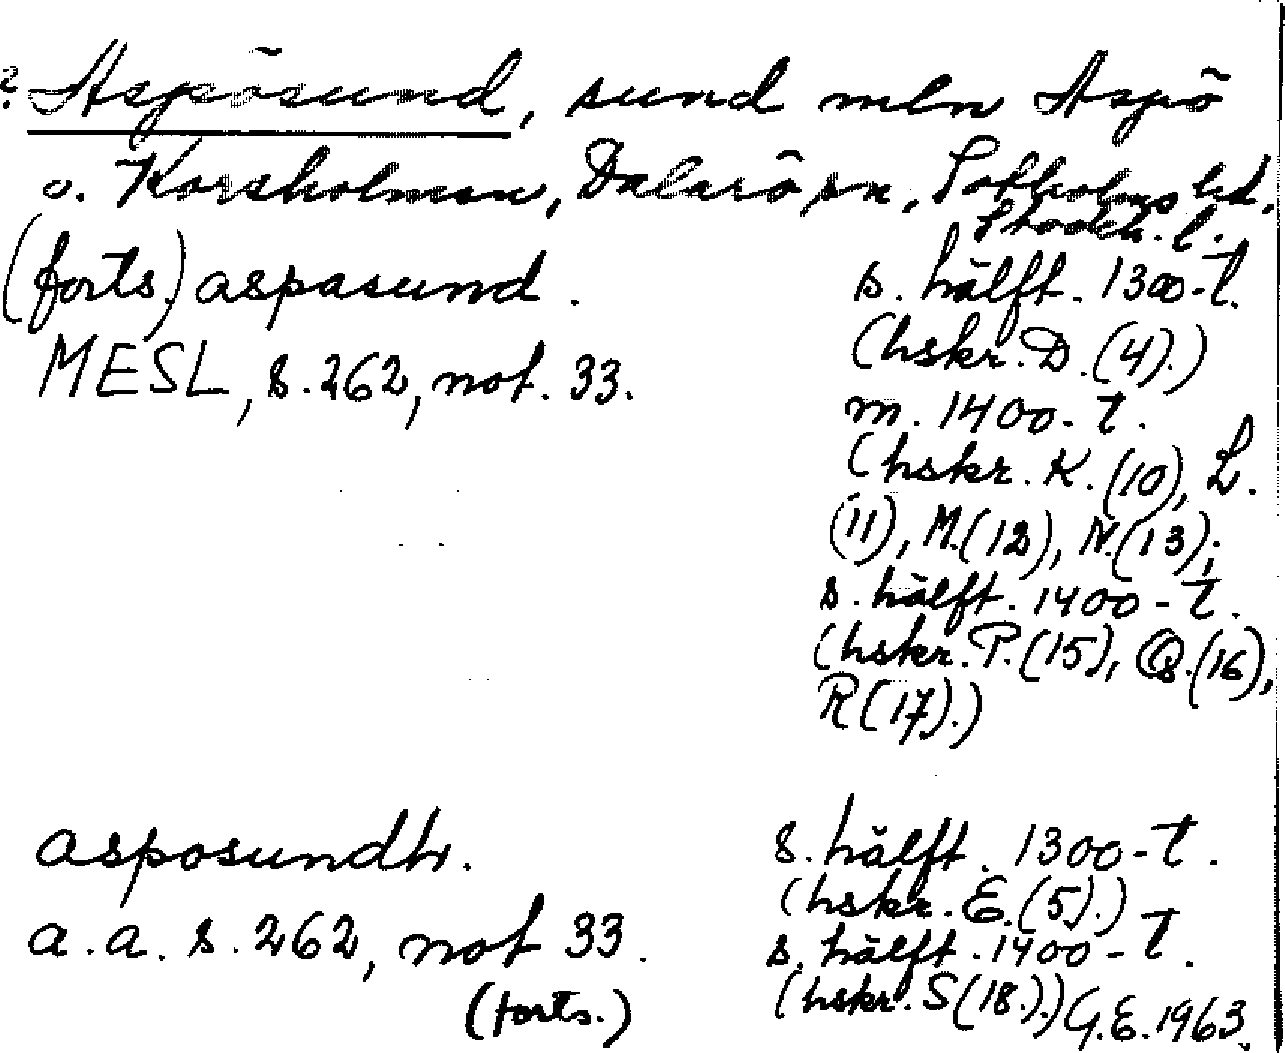 ? Aspösund, sund mln Aspö
o. Korsholmen, Dalarö sn, Sotholms hd,
Stockh. l.
(forts.) aspasund. s. hälft. 1300-t.
(hskr. D. (4).)
MESL, s. 262, not. 33.
m. 1400-t.
(hskr. K. (10), L.
(11), M. (12), N. (13);
s. hälft. 1400-t.
(hskr. P. (15), Q. (16),
R (17).)
asposundh. s. hälft. 1300-t.
(hskr. E. (5).)
a. a. s. 262, not 33. s. hälft. 1400-t.
(forts.) (hskr. S (18.).) G.E. 1963.